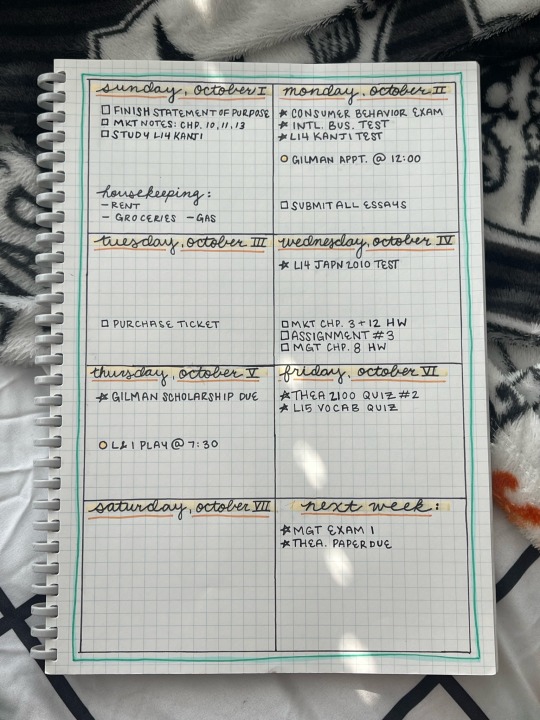 sunday, october I
☐ FINISH STATEMENT OF PURPOSE
☐ MKT NOTES: CHP. 10, 11, 13
☐ STUDY L14 KANJI
housekeeping:
– RENT
– GROCERIES – GAS
monday, october II
☆ CONSUMER BEHAVIOR EXAM
☆ INTL. BUS. TEST
☆ L14 KANJI TEST
○ GILMAN APPT. @ 12:00
☐ SUBMIT ALL ESSAYS
tuesday, october III
☐ PURCHASE TICKET
wednesday, october IV
☆ L14 JAPN 2010 TEST
☐ MKT CHP. 3 + 12 HW
☐ ASSIGNMENT #3
☐ MGT CHP. 8 HW
thursday, october V
☆ GILMAN SCHOLARSHIP DUE
○ L&I PLAY @ 7:30
friday, october VI
☆ THEA 2100 QUIZ #2
☆ L15 VOCAB QUIZ
saturday, october VII
next week:
☆ MGT EXAM 1
☆ THEA. PAPER DUE